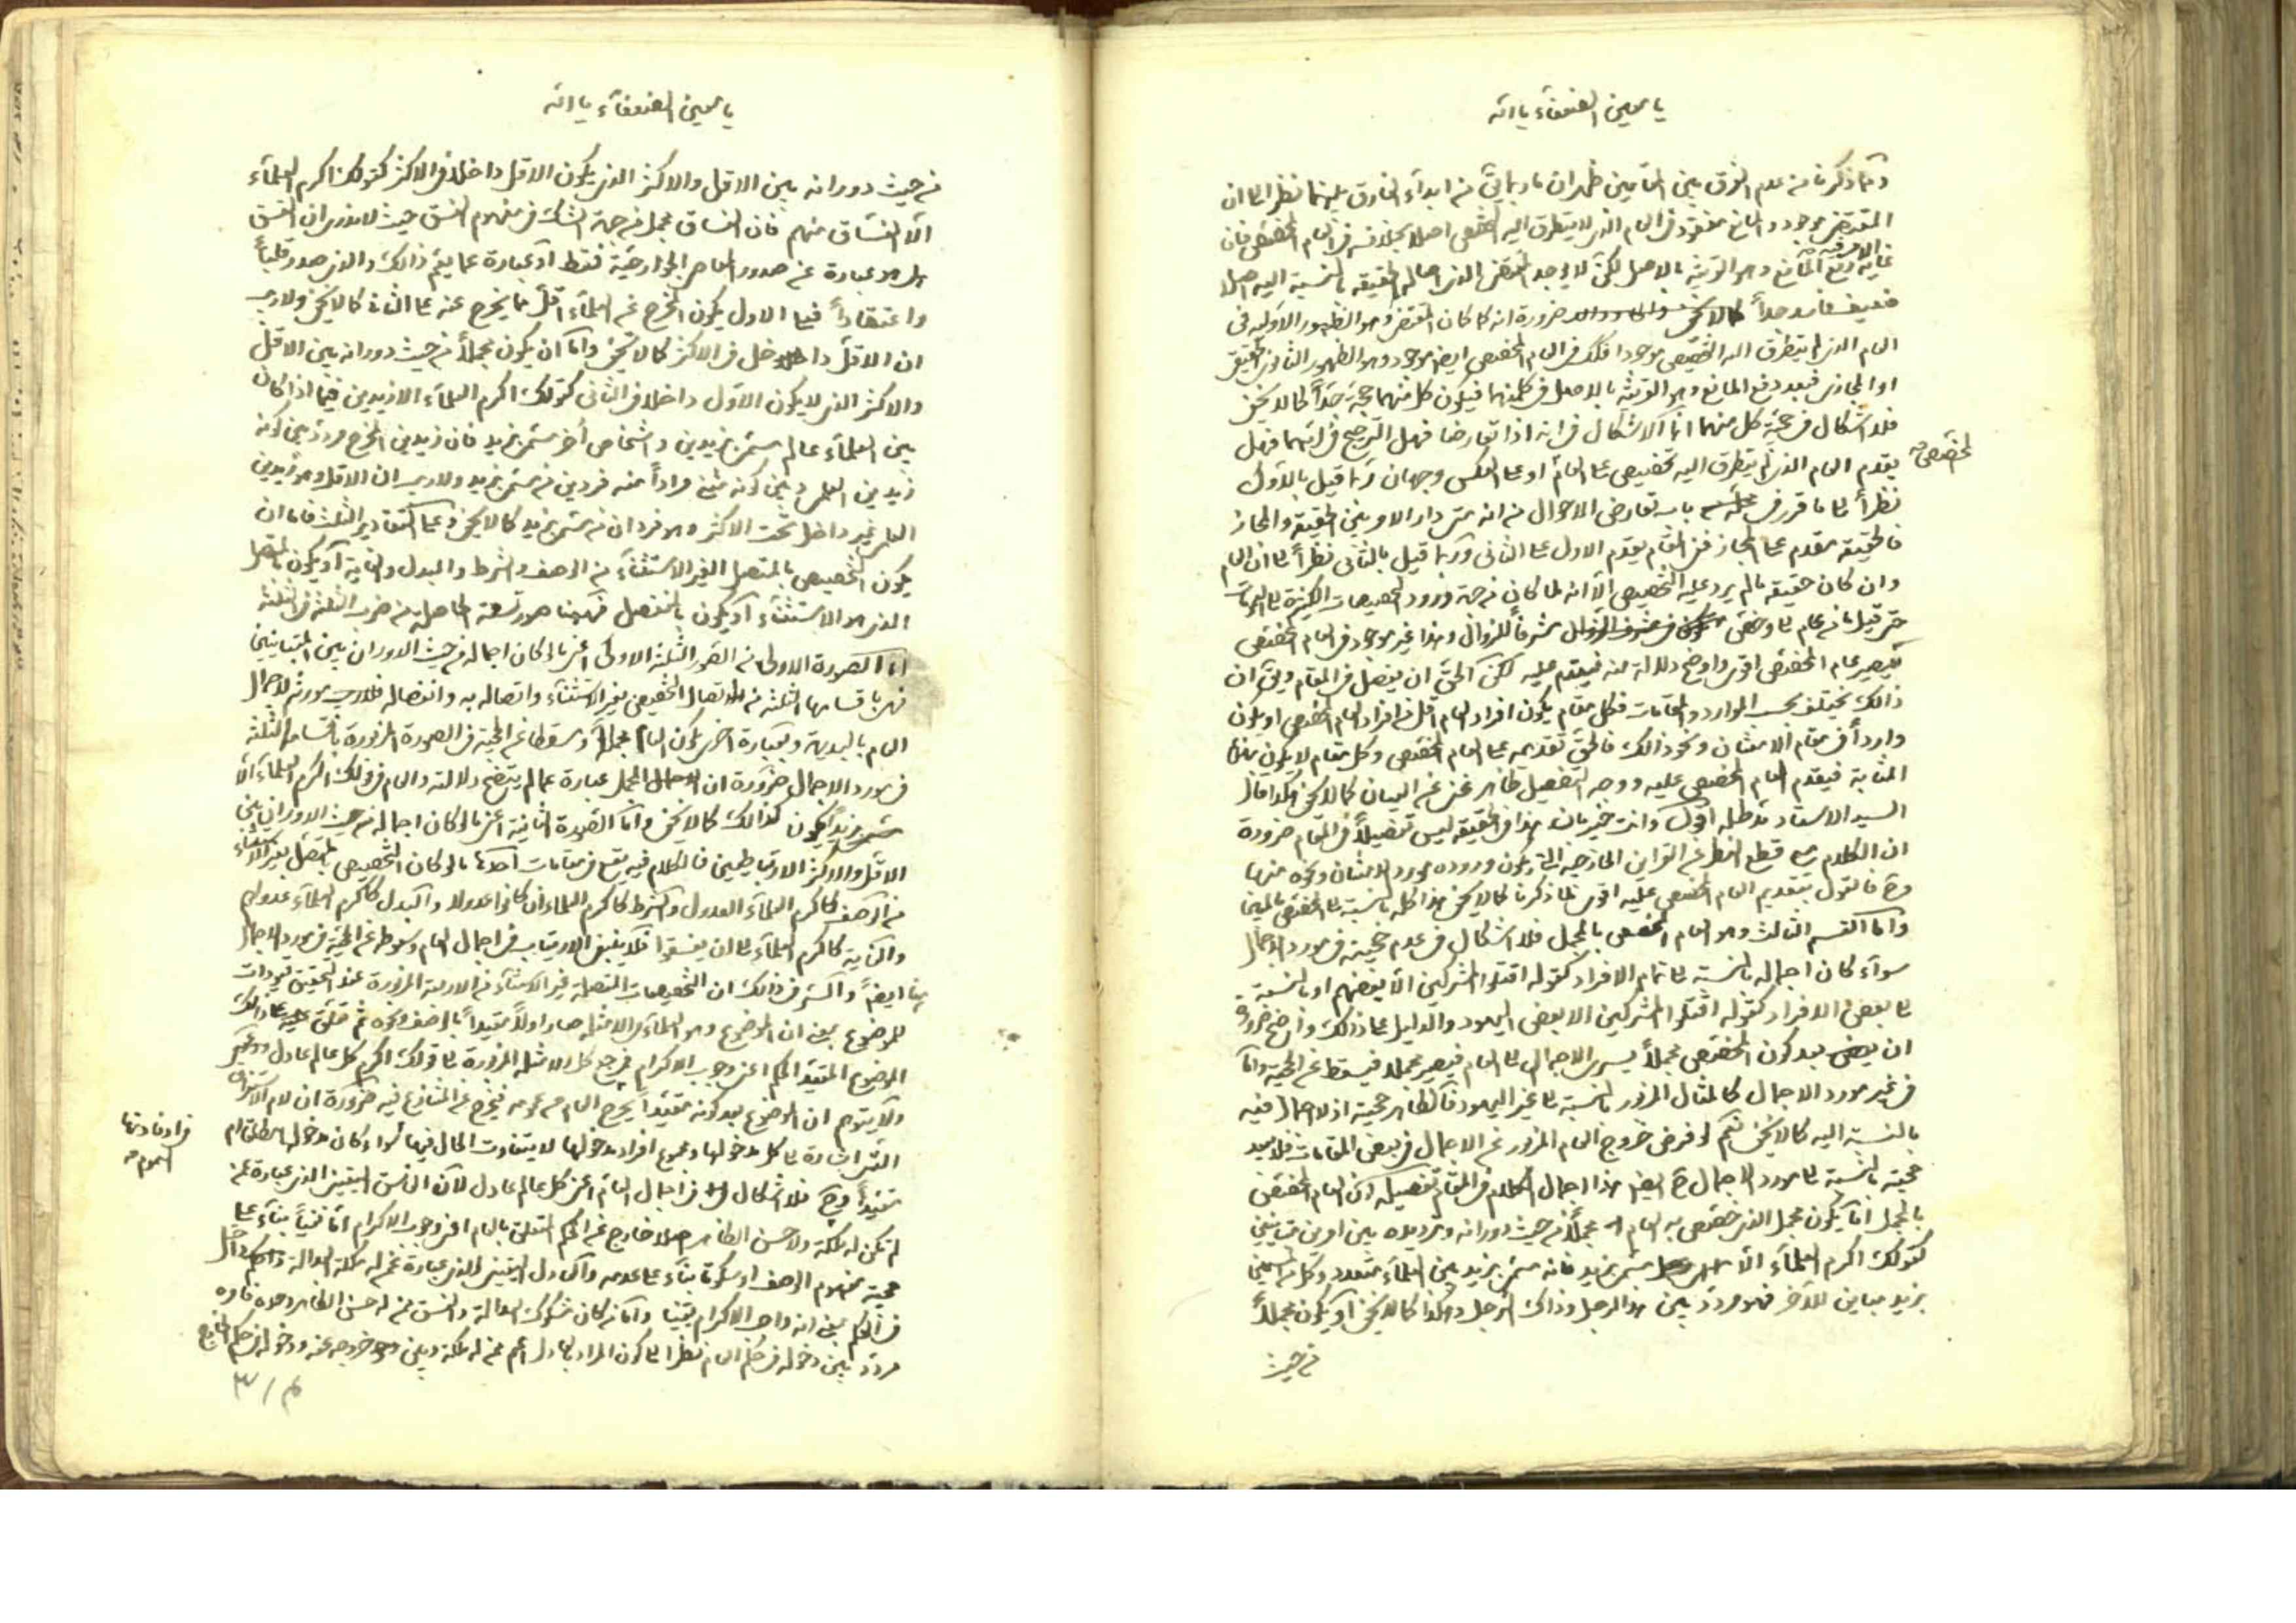 يا معين الضعفاء يا الله
ومما ذكرنا من عدم الفرق بين المقامين ظهر ان ما ربما يأتي من ابداء الفارق بينهما نظرا الى ان
المقتضي موجود والمانع مفقود في العام الذي لا يتطرق اليه التخصيص اصلا بخلافه في العام المخصص فان
غاية الامر فيه رفع المانع وهو القرينة بالاصل لكن لا يوجد المقتضي الذي اصالة الحقيقة بالنسبة اليه اصلا
ضعيف فاسد جداً ضرورة انه كما كان المقتضي وهو الظهور الاولية في
العام الذي لم يتطرق اليه التخصيص موجودا فكك في العام المخصص ايضا موجود وهو الظهور الثانوي الحقيقي
او المجازي فبعد دفع المانع وهو القرينة بالاصل في كليهما فيكون كل منهما حجة جداً كما لا يخفى
فلا اشكال في حجية كل منهما انما الاشكال في انه اذا تعارضا فهل الترجيح في ايهما فهل
يقدم العام الذي لم يتطرق اليه تخصيص على العام المخصص او على العكس وجهان ربما قيل بالاول
نظراً الى ما قرر في باب تعارض الاحوال من انه متى دار الامر بين الحقيقة والمجاز
فالحقيقة مقدم على المجاز ففي المقام يقدم الاول على الثاني وربما قيل بالثاني نظراً الى ان العام
وان كان حقيقة ما لم يرد عليه التخصيص الا انه لما كان من جهة ورود التخصيصات الكثيرة على العمومات
حتى قيل ما من عام الا وقد خص مشرفاً للزوال وهذا غير موجود في العام المخصص
فيصير عام المخصص اقوى واوضح دلالة منه فيقدم عليه لكن الحق ان يفصل في المقام ويق ان
ذالك يختلف بحسب الموارد والمقامات فكل مقام يكون افراد العام اقل من افراد العام المخصص او يكون
وارداً في مقام الامتنان ونحو ذالك فالحق تقديمه على العام المخصص وكل مقام لا يكون بهذه
المثابة فيقدم العام المخصص عليه ووجه التفصيل ظاهر غني عن البيان كما لا يخفى هكذا افاد
السيد الاستاد مد ظله اقول وانت خبير بان هذا في الحقيقة ليس تفصيلاً في المقام ضرورة
ان الكلام مع قطع النظر عن القراين الخارجية التي يكون وروده مورد الامتنان ونحوه منها
وح فالقول بتقديم العام المخصص عليه اقوى لما ذكرنا كما لا يخفى هذا كله بالنسبة الى المخصص بالمبين
واما القسم الثالث وهو العام المخصص بالمجمل فلا اشكال في عدم حجيته في مورد الاجمال
سواء كان اجماله بالنسبة الى تمام الافراد كقوله اقتلوا المشركين الا بعضهم او بالنسبة
الى بعض الافراد كقوله اقتلوا المشركين الا بعض اليهود والدليل على ذالك واضح ضرورة
ان بعد كون المخصص مجملاً يسري الاجمال الى العام فيصير مجملا فيسقط عن الحجية واما
في غير مورد الاجمال كالمثال المزبور بالنسبة الى غير اليهود فالظاهر حجيته اذ لا اجمال فيه
بالنسبة اليه كما لا يخفى نعم لو فرض خروج العام المزبور عن الاجمال في بعض المقامات فلا بعد
حجيته بالنسبة الى مورد الاجمال ح ايضا هذا اجمال الكلام في المقام تفصيله ان العام المخصص
بالمجمل اما يكون مجمل الذي خصص به العام مجملاً من حيث دورانه وترديده بين امرين متباينين
كقولك اكرم العلماء الا من سمي بزيد فانه متى بزيد بين العلماء متعدد وكل من المسمين
بزيد مباين للآخر فهو مردد بين هذا الرجل وذاك الرجل وهكذا كما لا يخفى او يكون مجملاً
من حيث
يا معين الضعفاء يا الله
من حيث دورانه بين الاقل والاكثر الذي يكون الاقل داخلا في الاكثر كقولك اكرم العلماء
الا الفساق منهم فان الفساق مجمل من جهة الشك في مفهوم الفسق حيث لا ندري ان الفسق
هل هو عبارة عن صدور المعاصي الجوارحية فقط او عبارة عما يعم ذالك والذي صدر قلباً
واعتقاداً فعلى الاول يكون المخرج عن العلماء اقل مما يخرج عنه على الثاني كما لا يخفى ولا ريب
ان الاقل داخل في الاكثر كما لا يخفى واما ان يكون مجملاً من حيث دورانه بين الاقل
والاكثر الذي لا يكون الاول داخلا في الثاني كقولك اكرم العلماء الا زيدين فيما اذا كان
بين العلماء عالم مسمى بزيدين واشخاص أخر مسمى بزيد فان زيدين المخرج مردد بين كونه
زيدين العلمي وبين كونه تثنية مراداً منه فردين من مسمى بزيد ولا ريب ان الاقل وهو زيدين
العلمي غير داخل تحت الاكثر وهو فردان من مسمى بزيد كما لا يخفى وعلى التقادير الثلث فاما ان
يكون التخصيص بالمتصل الغير الاستثناء من الوصف والشرط والبدل والغاية او يكون بالمتصل
الذي هو الاستثناء او يكون بالمنفصل فههنا صور تسعة الحاصلة من ضرب الثلثة في الثلثة
اما الصورة الاولى من الصور الثلثة الاولى اعني ما لو كان اجماله من حيث الدوران بين المتباينين
فهي باقسامها الثلثة من اتصال المخصص بغير الاستثناء واتصاله به وانفصاله فلا ريب يورث الاجمال
العام بالبديهة وبعبارة اخرى يكون العام مجملاً وسقطا عن الحجية في الصورة المزبورة باقسامها الثلثة
في مورد الاجمال ضرورة ان المجمل عبارة عما لم يتضح دلالته والعام في قولك اكرم العلماء الا
زيد يكون كذالك كما لا يخفى واما الصورة الثانية اعني ما لو كان اجماله من حيث الدوران بين
الاقل والاكثر الارتباطيين فالكلام فيه يقع في مقامات احدها ما لو كان التخصيص بالمتصل بغير الاستثناء
من الوصف كاكرم العلماء العدول والشرط كاكرم العلماء ان كانوا عدولا والبدل كاكرم العلماء عدولهم
والغاية كاكرم العلماء الى ان يفسقوا فلا ينبغي الارتياب في اجمال العام وسقوطه عن الحجية في مورد الاجمال
هنا ايضاً والسر في ذالك ان التخصيصات المتصلة غير الاستثناء من الاربعة المزبورة عند التحقيق قيودات
للموضوع بمعنى ان الموضوع وهو العلماء في الامثلة صار اولاً مقيداً بالوصف ونحوه ثم علق على ذالك
الموضوع المقيد الحكم اعني وجوب الاكرام فمرجع كل الامثلة المزبورة الى قولك اكرم كل عالم عادل
ولا يتوهم ان الموضوع بعد كونه مقيداً يخرج العام من عمومه فيخرج عن المتنازع فيه ضرورة ان لام الاستغراق
اشارة الى كل مدخولها وجميع افراد مدخولها لا يتفاوت الحال فيها سواء كان مدخولها مطلقا ام
مقيداً وح فلا اشكال في اجمال العام اعني كل عالم عادل لان الفاسق اليقيني الذي عبارة عمن
لم تكن له ملكة ولا حسن الظاهر اصلا خارج عن الحكم المتعلق بالعام اعني وجوب الاكرام اما نفياً بناء على
حجية مفهوم الوصف او سكوتا بناء على عدمه والعادل اليقيني الذي عبارة عمن له ملكة العدالة داخل
في الحكم بمعنى انه واجب الاكرام يقينا واما من كان مشكوك العدالة والفسق ممن له حسن الظاهر وحده فامره
مردد بين دخوله في حكم العام نظرا الى كون المراد بالعادل اعم ممن له ملكة وبين خروجه عنه ودخوله في حكم الخارج